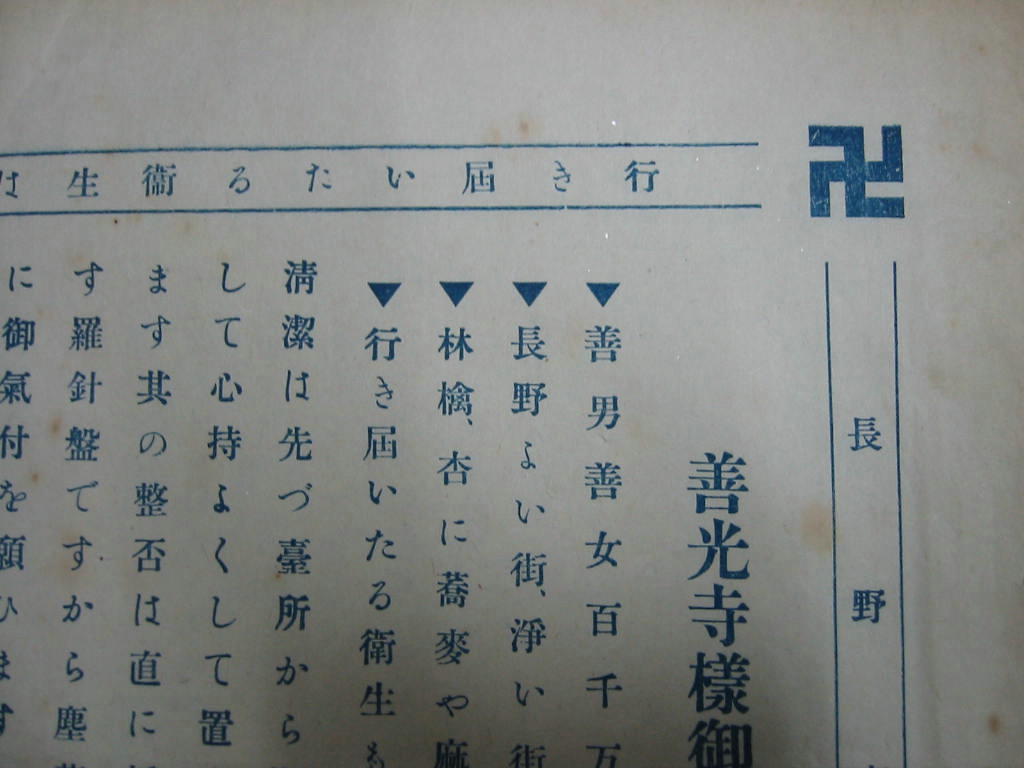 卍
長野
行き屆いたる衞生は
善光寺樣御
▼善男善女百千万
▼長野よい街、淨い街
▼林檎、杏に蕎麥や麻
▼行き屆いたる衛生も
淸潔は先づ臺所から
して心持よくして置
ます其の整否は直に
す羅針盤ですから塵
に御氣付を願ひます